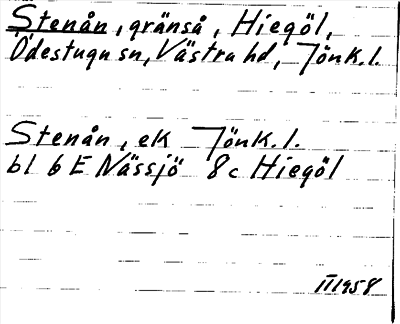 Stenån, gränså, Hiegöl,
Ödestugu sn, Västra hd, Jönk. l.
Stenån, ek Jönk. l.
bl 6 E Nässjö 8c Hiegöl
III 1958